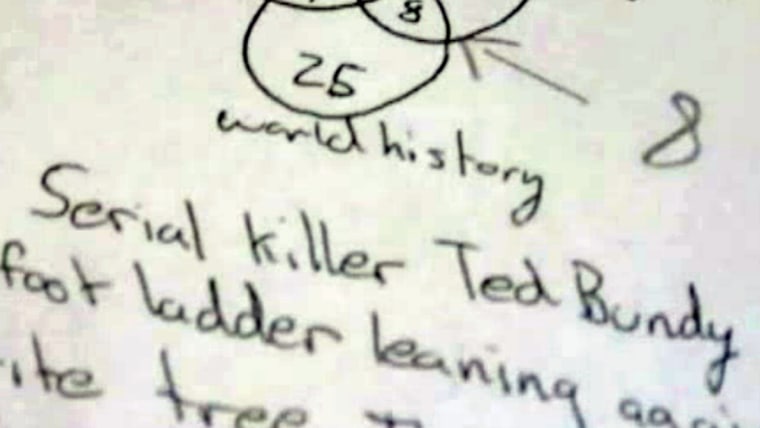 8
25
8
world history
Serial killer Ted Bundy
foot ladder leaning
tree